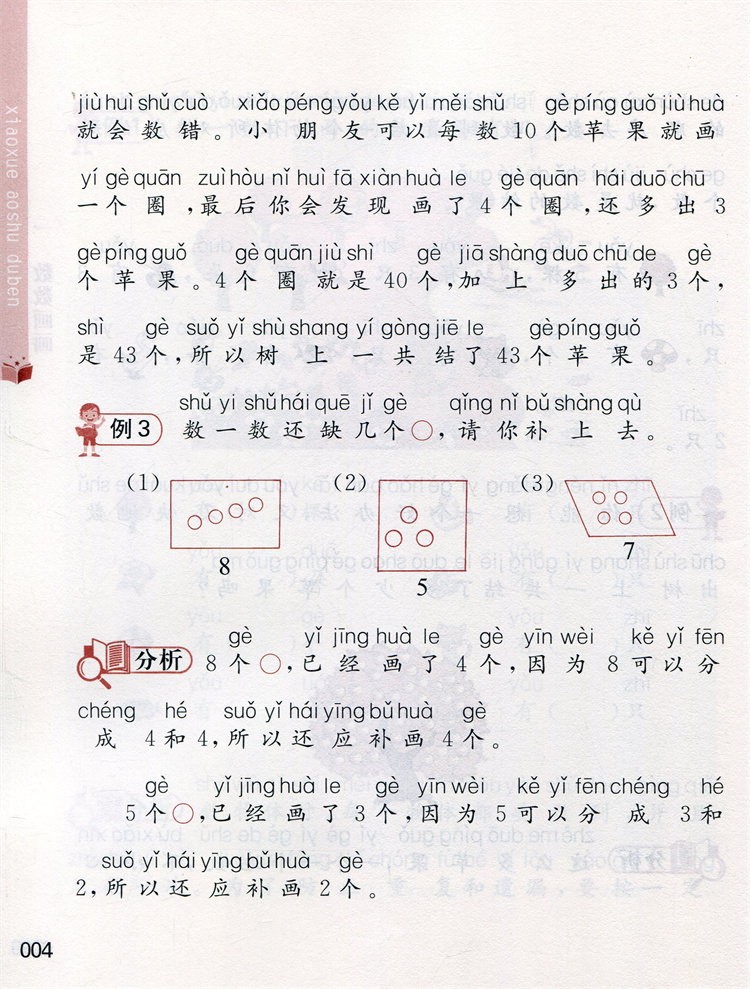 xiaoxue aoshu duben
数数画画
jiù huì shǔ cuò xiǎo péng yǒu kě yǐ měi shǔ gè píng guǒ jiù huà
就会数错。小朋友可以每数10个苹果就画
yí gè quān zuì hòu nǐ huì fā xiàn huà le gè quān hái duō chū
一个圈,最后你会发现画了4个圈,还多出3
gè píng guǒ gè quān jiù shì gè jiā shàng duō chū de gè
个苹果。4个圈就是40个,加上多出的3个,
shì gè suǒ yǐ shù shang yí gòng jiē le gè píng guǒ
是43个,所以树上一共结了43个苹果。
shǔ yi shǔ hái quē jǐ gè qǐng nǐ bǔ shàng qù
例3 数一数还缺几个○,请你补上去。
(1) (2) (3)
8 5 7
gè yǐ jīng huà le gè yīn wèi kě yǐ fēn
分析 8个○,已经画了4个,因为8可以分
chéng hé suǒ yǐ hái yīng bǔ huà gè
成4和4,所以还应补画4个。
gè yǐ jīng huà le gè yīn wèi kě yǐ fēn chéng hé
5个○,已经画了3个,因为5可以分成3和
suǒ yǐ hái yīng bǔ huà gè
2,所以还应补画2个。
004